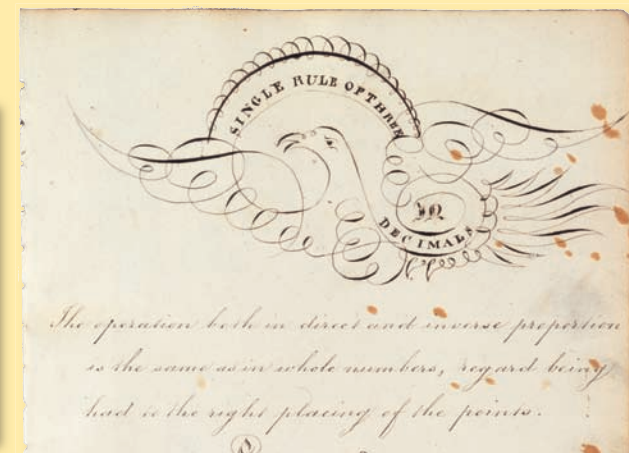 SINGLE RULE OF THREE
IN
DECIMALS
The operation both in direct and inverse proportion
is the same as in whole numbers, regard being
had to the right placing of the points.